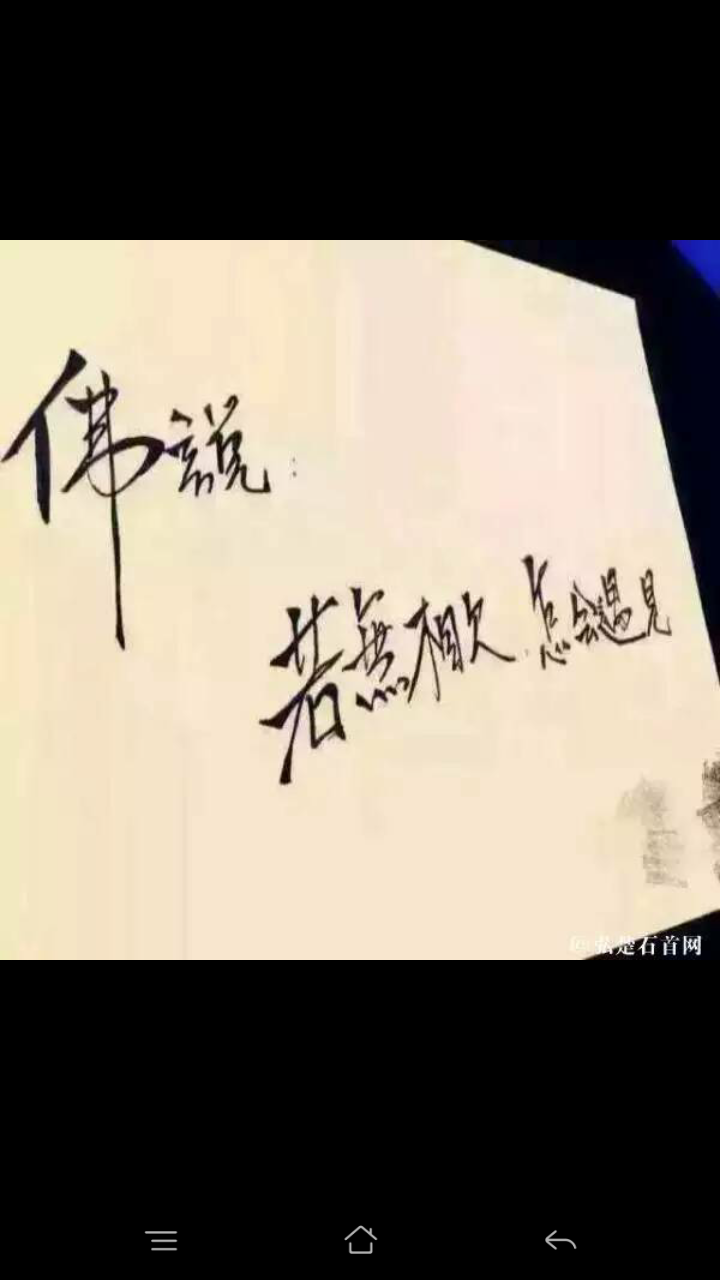 佛說:
若無相欠.怎会遇见
弘楚石首网